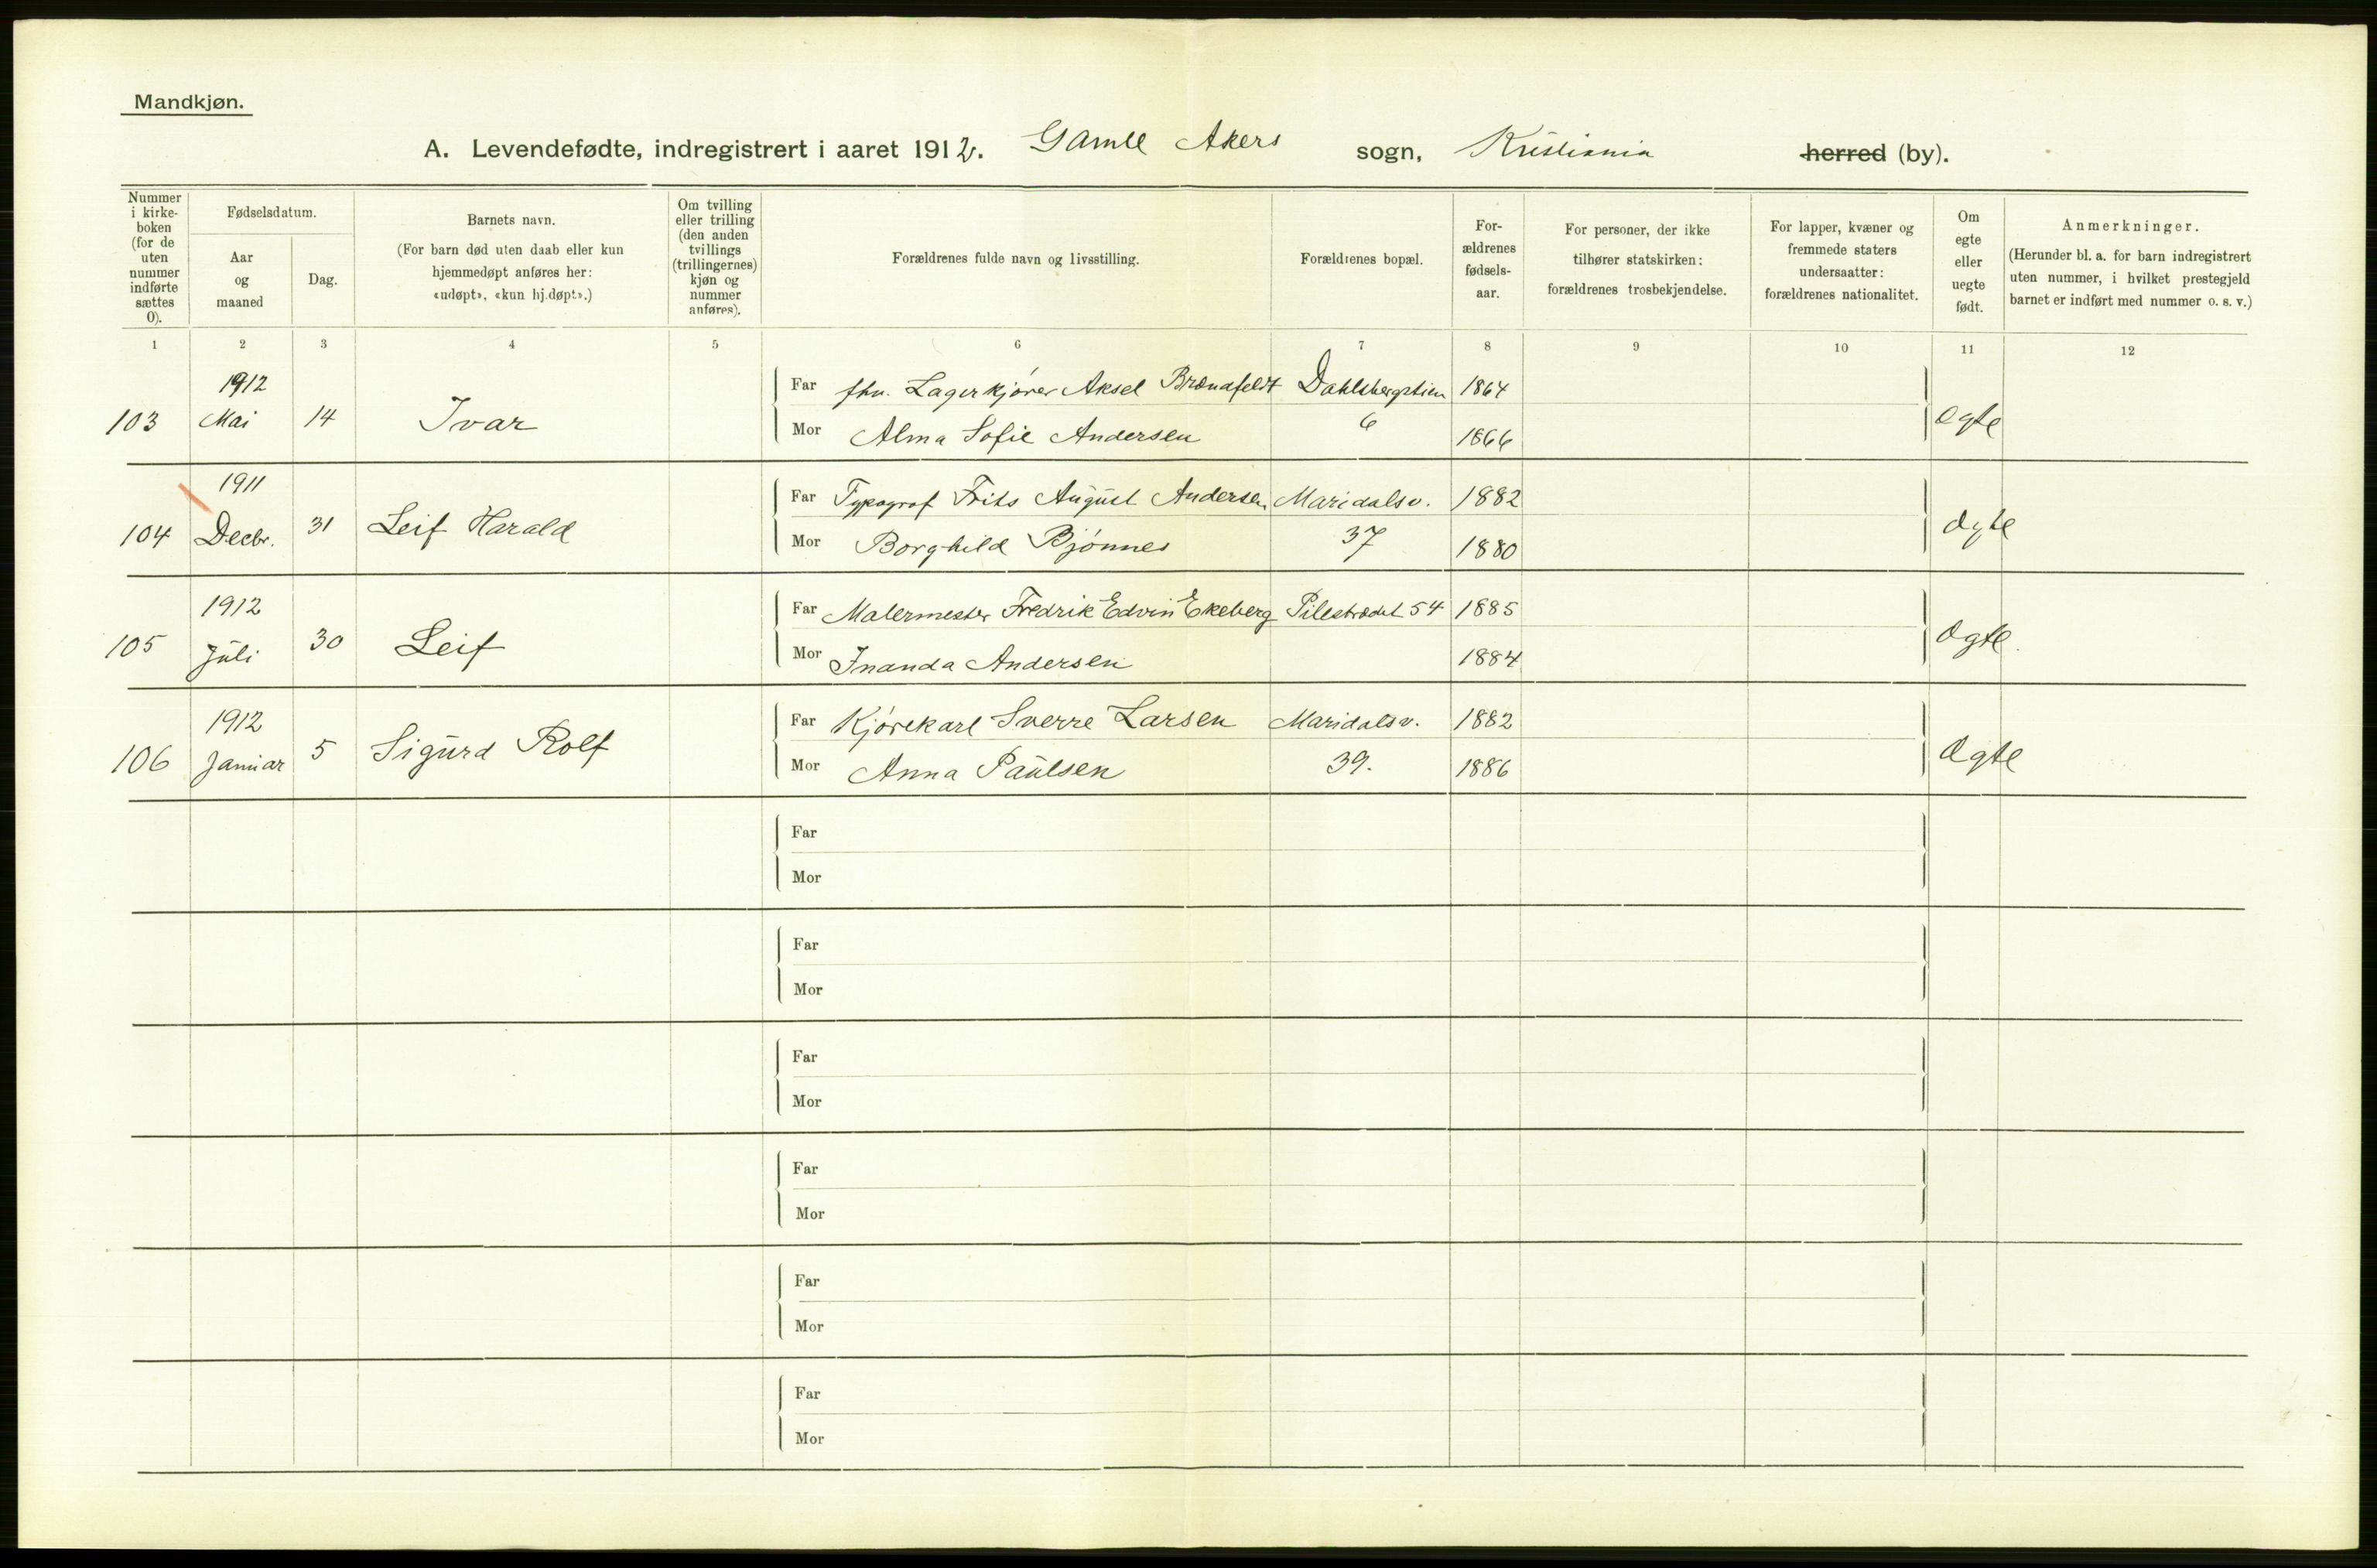 Mandkjøn.
A. Levendefødte, indregistrert i aaret 1912. Gamle Akers sogn, Kristiania herred (by).
Nummer i kirke- boken (for de uten nummer indførte sættes 0).
Fødselsdatum.
Aar og maaned
Dag.
Barnets navn.
(For barn død uten daab eller kun hjemmedøpt anføres her: «udøpt», «kun hj.døpt».)
Om tvilling eller trilling (den anden tvillings (trillingernes) kjøn og nummer anføres).
Forældrenes fulde navn og livsstilling.
Forældrenes bopæl.
For- ældrenes fødsels- aar.
For personer, der ikke tilhører statskirken: forældrenes trosbekjendelse.
For lapper, kvæner og fremmede staters undersaatter: forældrenes nationalitet.
Om egte eller uegte født.
Anmerkninger.
(Herunder bl. a. for barn indregistrert uten nummer, i hvilket prestegjeld barnet er indført med nummer o. s. v.)
1 2 3 4 5 6 7 8 9 10 11 12
1912 Far fhv. Lagerkjører Aksel Dahlsbergstien 1864
103 Mai 14 Ivar Mor Alma Sofie Andersen 6 1866 Ægte
1911 Far Typograf Frits August Andersen Maridalsv. 1882
104 Decbr. 31 Leif Harald Mor Borghild Bjönnes 37 1880 Ægte
1912 Far Malermester Fredrik Edvin Ekeberg Pilestrædet 54 1885
105 Juli 30 Leif Mor Inanda Andersen 1884 Ægte
1912 Far Kjörekarl Sverre Larsen Maridalsv. 1882
106 Januar 5 Sigurd Rolf Mor Anna Paulsen 39. 1886 Ægte
Far
Mor
Far
Mor
Far
Mor
Far
Mor
Far
Mor
Far
Mor